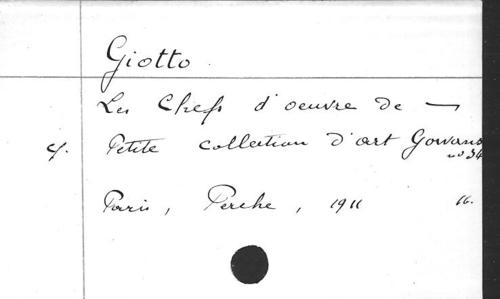 Giotto
Les Chefs d'oeuvre de —
Petite collection d'art Gowans
no 34
Paris, Perche, 1911 16.